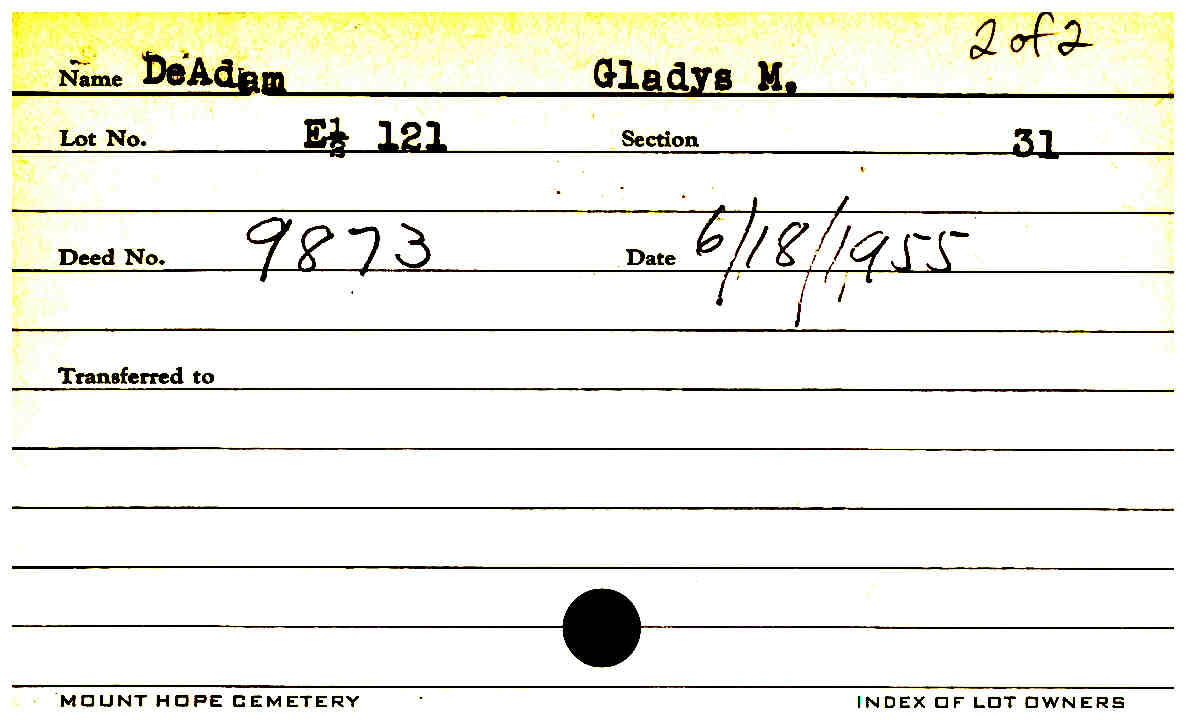 2 of 2
Name DeAdam Gladys M.
Lot No. E½ 121 Section 31
Deed No. 9873 Date 6/18/1955
Transferred to
MOUNT HOPE CEMETERY INDEX OF LOT OWNERS